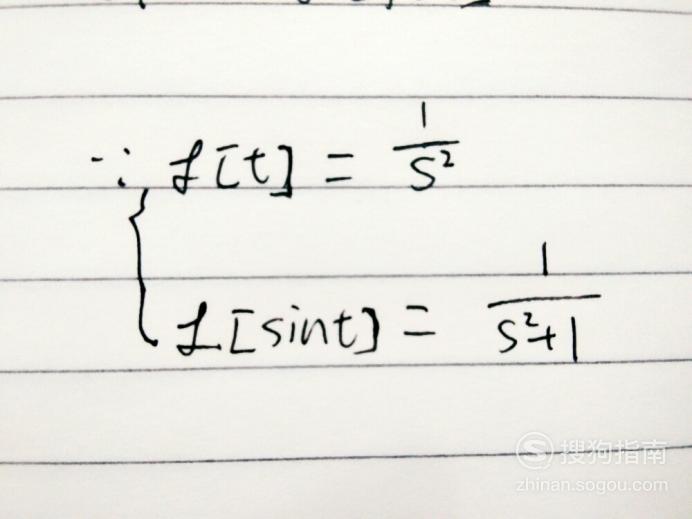 ∵ ℒ[t] = 1/s²
ℒ[sint] = 1/(s²+1)
搜狗指南
zhinan.sogou.com